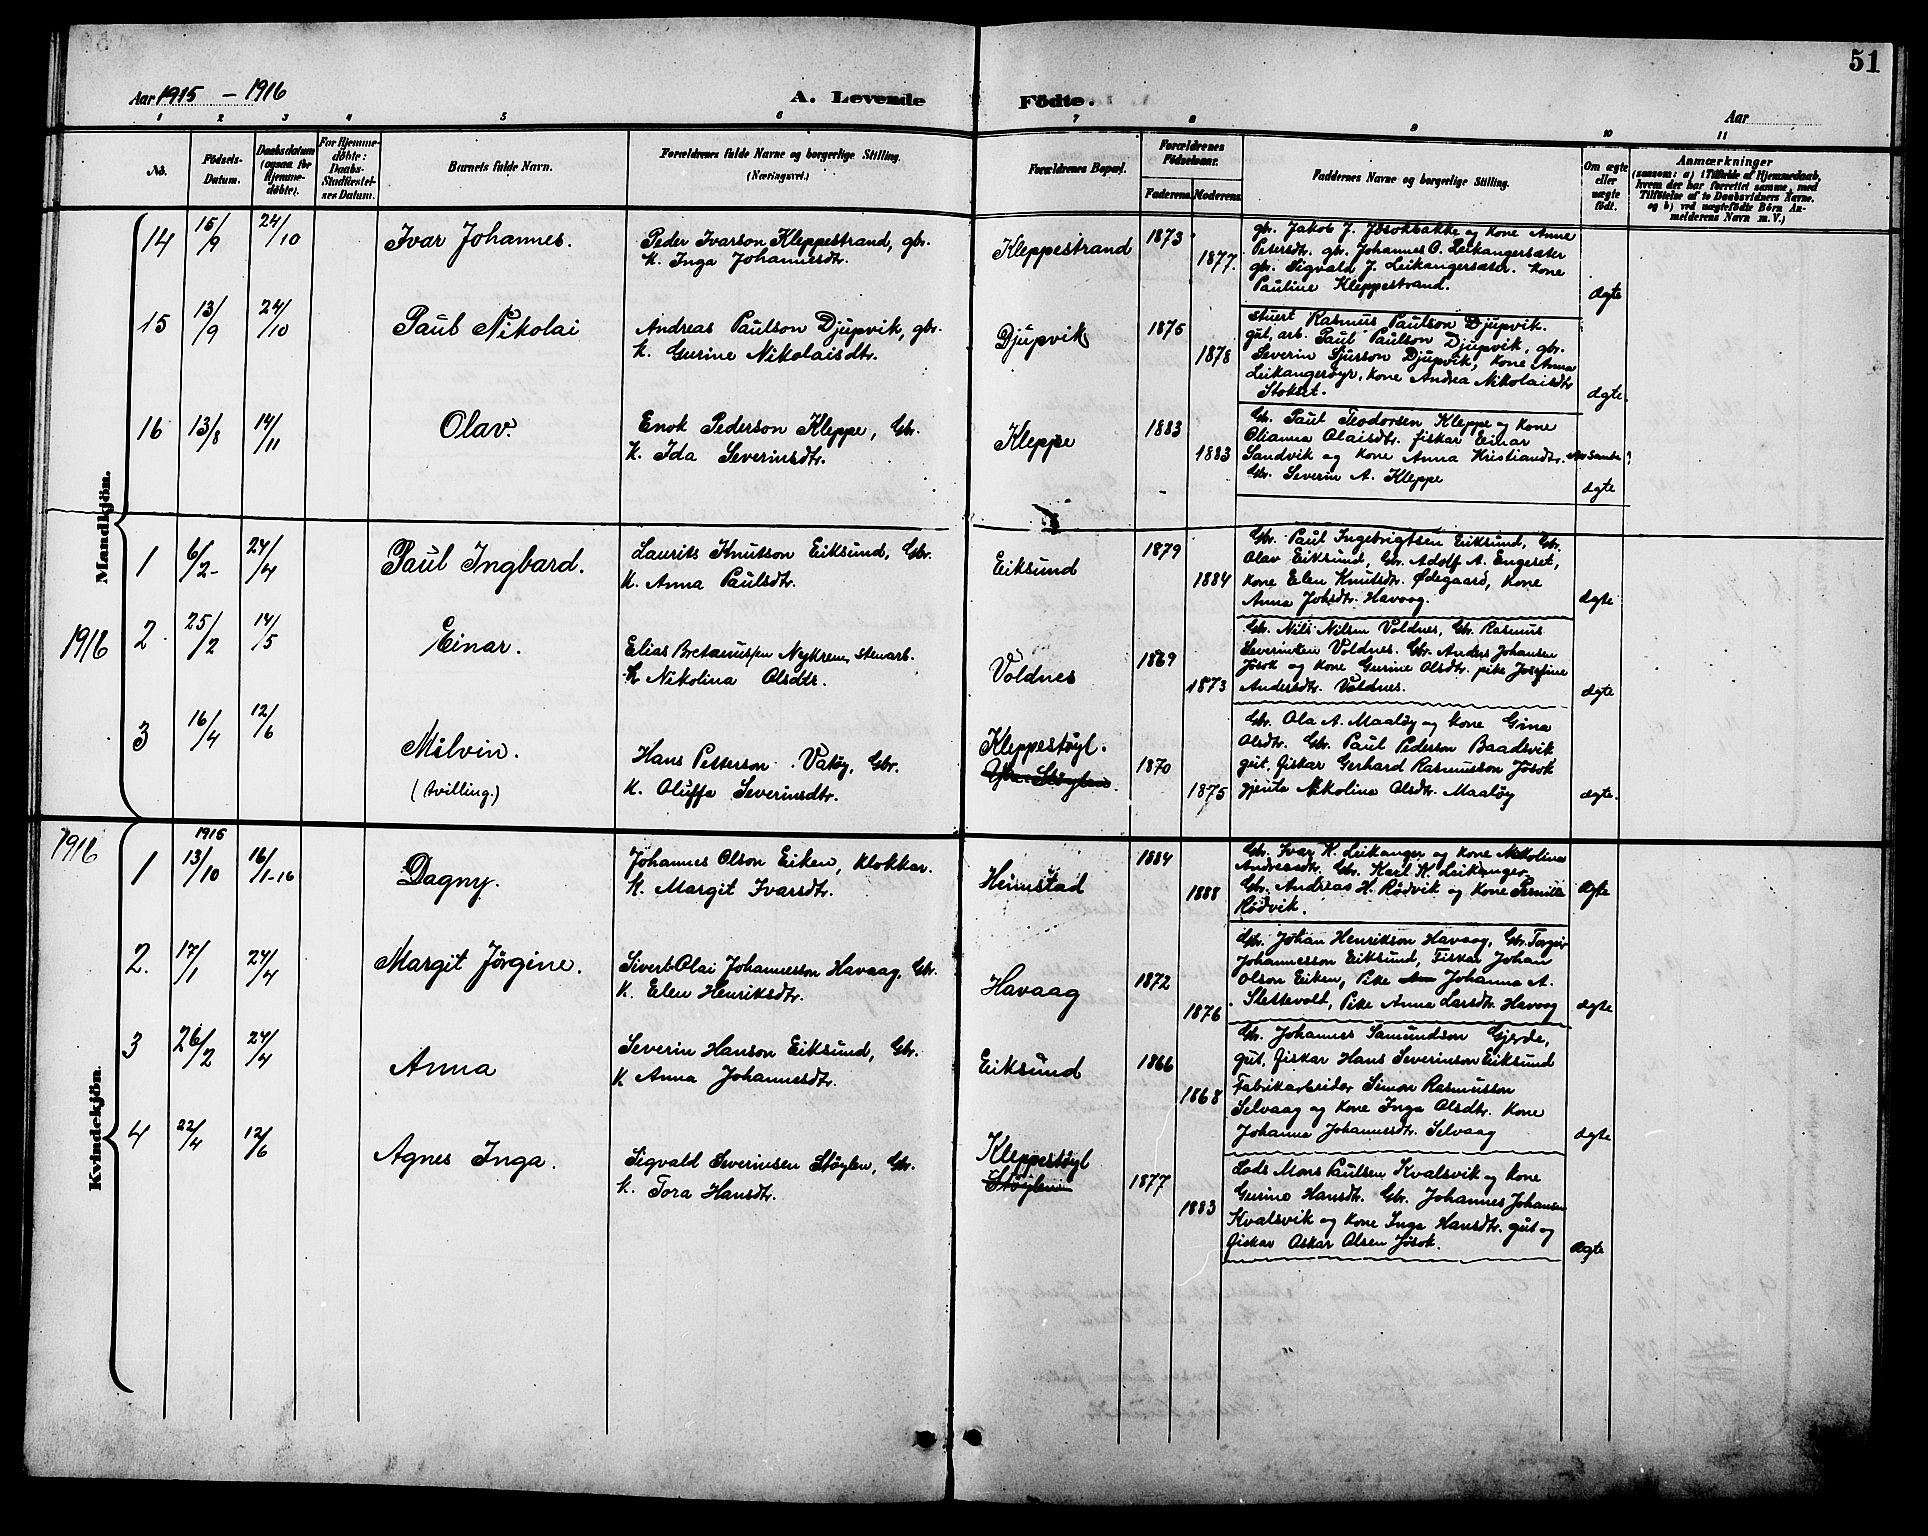 51
Aar 1915 - 1916
A. Levende Födte.
Aar
1 2 3 4 5 6 7 8 9 10 11
No.
Födsels-Datum.
Daabsdatum (ogsaa for Hjemme-döbte).
For Hjemme-döbte: Daabs-Stadfæstel-ses Datum.
Barnets fulde Navn.
Forældrenes fulde Navne og borgerlige Stilling.
(Næringsvei.)
Forældrenes Bopæl.
Forældrenes Födselsaar.
Faderens. Moderens.
Faddernes Navne og borgerlige Stilling.
Om ægte eller uægte födt.
Anmærkninger
(saasom: a) i Tilfælde af Hjemmedaab, hvem der har forrettet samme, med Tilföielse af to Daabsvidners Navne. og b) ved uægtefödte Börn An-melderens Navn m. V.)
Mandkjön.
14 15/9 24/10 Ivar Johannes.
Peder Ivarson Kleppestrand, gbr.
K. Inga Johannesdtr.
Kleppestrand 1873 1877.
gbr. Jakob J. Jøsokbakke og Kone Anne
Petersdtr. gbr. Johannes O. Leikangersæter
gbr. Sigvald J. Leikangersæter. Kone
Pauline Kleppestrand.
ægte
15 13/9 24/10 Paul Nikolai
Andreas Paulson Djupvik, gbr.
K. Gurine Nikolaisdtr.
Djupvik 1875 1878
stuert Rasmus Paulson Djupvik.
gut, arb. Paul Paulson Djupvik, gbr.
Severin Sjurson Djupvik, Kone Anna
Leikangerøyr, Kone Andrea Nikolaisdtr
Stokset.
ægte.
16 13/8 14/11 Olav.
Enok Pederson Kleppe, Gbr.
K. Ida Severinsdtr.
Kleppe 1883 1883
Gbr. Paul Teodorsen Kleppe og Kone
Olianna Olaisdtr. fiskar Einar
Sandvik og Kone Anna Kristiandtr.
Gbr. Severin A. Kleppe
ægte
1 6/2 24/4 Paul Ingbard.
Laurits Knutson Eiksund, Gbr.
K. Anna Paulsdtr.
Eiksund 1879 1884
Gbr. Paul Ingebrigtsen Eiksund, Gbr.
Olav Eiksund, Gbr. Adolf A. Engeset,
Kone Elen Knutsdtr. Ødegaard, Kone
Anna Johsdtr. Havaag.
ægte
1916
2 25/2 14/5 Einar.
Elias Bretanussen Nykrem, stenarb.
K. Nikolina Olsdtr.
Voldnes 1869 1873
Gbr. Nils Nilsen Voldnes, Gbr. Rasmus
Severinsen Voldnes. Gbr. Anders Johansen
Jøsok og Kone Gurine Olsdtr. pike Josefine
Andersdtr. Voldnes.
ægte
3 16/4 12/6 Milvin.
(tvilling.)
Hans Petterson Vatøy, Gbr.
K. Oluffa Severinsdtr.
Kleppestøyl.
1870 1875
Gbr. Ola A. Maaløy og Kone Gina
Olsdtr. Gbr. Paul Pederson Baadsvik
gut, fiskar Gerhard Rasmusson Jøsok
gjenta Nikolina Olsdtr. Maaløy
ægte.
Kvindekjön.
1916
1 1915 13/10 16/1-16 Dagny.
Johannes Olson Eiken, klokkar.
K. Margit Ivarsdtr.
Heimstad 1884 1888
Gbr. Ivar K. Leikanger og Kone Nikolina
Andreasdtr. Gbr. Karl K. Leikanger,
Gbr. Andreas H. Rødvik og Kone Pernille
Rødvik.
ægte
2. 17/1 24/4 Margit Jørgine.
Sivert Olai Johannesson Havaag, Gbr.
K. Elen Henriksdtr.
Havaag 1872 1876
Gbr. Johan Henrikson Havaag, Gbr. Torgeir
Johannesson Eiksund, Fiskar Johan
Olson Eiken, Pike Johanna A.
Slettevolt, Pike Anna Larsdtr. Havaag
ægte
3 26/2 24/4 Anna
Severin Hanson Eiksund, Gbr.
K Anna Johannesdtr.
Eiksund 1866 1868
Gbr. Johannes Samundson Gjerde,
gut, fiskar Hans Severinson Eiksund
Fabrikarbeider Simon Rasmusson
Selvaag og Kone Inga Olsdtr. Kone
Johanna Johannesdtr. Selvaag
ægte
4 22/4 12/6 Agnes Inga.
Sigvald Severinsen Støylen, Gbr.
K. Tora Hansdtr.
Kleppestøyl
Støylen
1877 1883
Lods Mons Paulsen Kvalsvik og Kone
Gurine Hansdtr. Gbr. Johannes Johansen
Kvalsvik og Kone Inga Hansdtr. gut og
fiskar Oskar Olsen Jøsok.
ægte